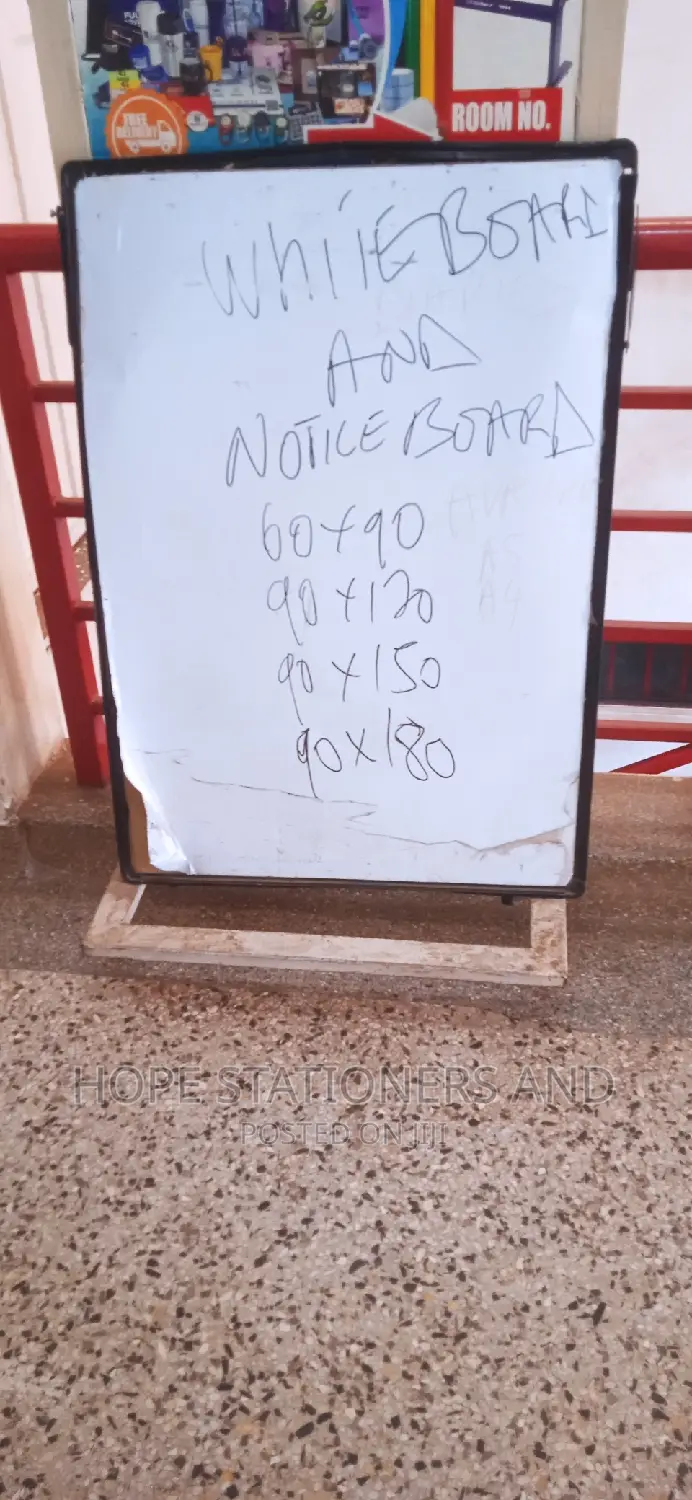 FREE
DELIVERY
ROOM NO.
WHITEBOARD
AND
NOTICE BOARD
60x90
90x120
90x150
90x180
A5
A4
HOPE STATIONERS AND
POSTED ON JIJI